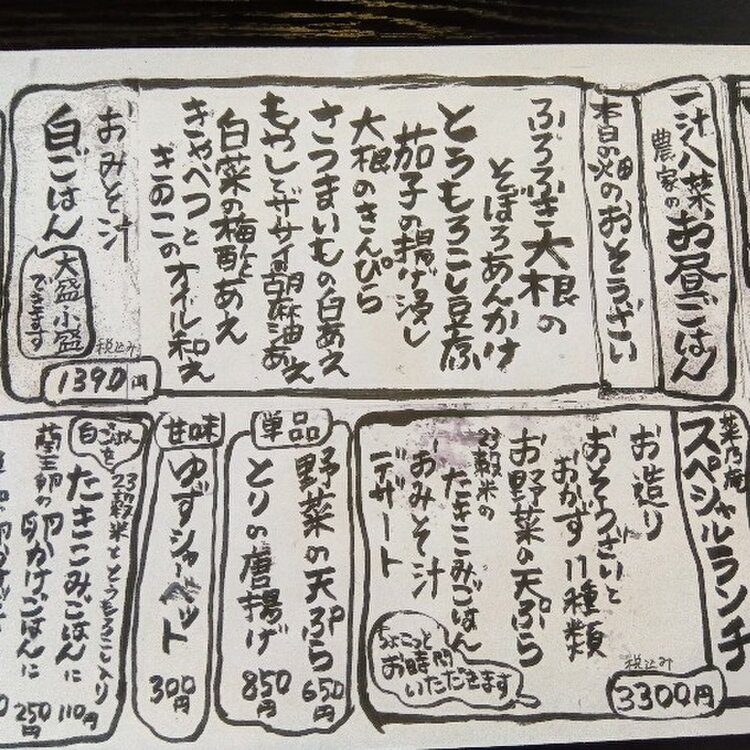 一汁八菜
農家の
お昼ごはん
本日の畑のおそうざい
ふろふき大根の
そぼろあんかけ
とうもろこし豆腐
茄子の揚げ浸し
大根のきんぴら
さつまいもの白あえ
もやしとザーサイの胡麻油あえ
白菜の梅酢あえ
きゃべつと
きのこのオイル和え
おみそ汁
白ごはん
大盛小盛
できます
税込み
1390円
菜乃庵
スペシャルランチ
お造り
おそうざいと
おかず11種類
お野菜の天ぷら
23穀米の
たきこみごはん
おみそ汁
デザート
ちょこっと
お時間
いただきます
税込み
3300円
単品
野菜の天ぷら
650円
とりの唐揚げ
850円
甘味
ゆずシャーベット
300円
白ごはんを
23穀米ととうもろこし入り
たきこみごはんに
110円
蘭王卵の卵かけごはんに
250円